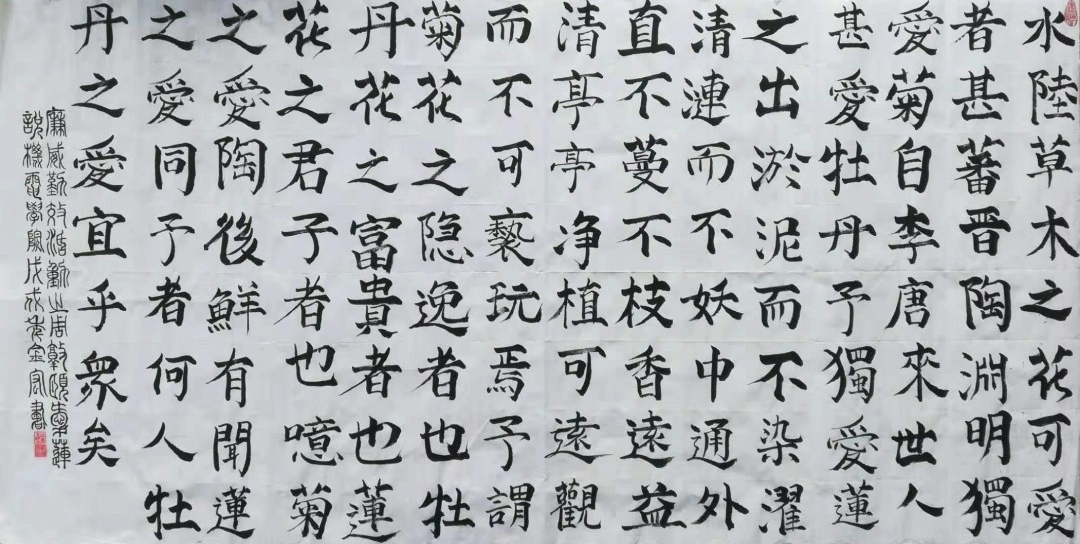 水陸草木之花可愛
者甚蕃晋陶淵明獨
愛菊自李唐來世人
甚愛牡丹予獨愛蓮
之出淤泥而不染濯
清漣而不妖中通外
直不蔓不枝香遠益
清亭亭净植可遠觀
而不可褻玩焉予謂
菊花之隐逸者也牡
丹花之富貴者也蓮
花之君子者也噫菊
之愛陶後鮮有聞蓮
之愛同予者何人牡
丹之愛宜乎眾矣
廉勤效活動之周敦頤愛蓮
説機電學院戊戌年金書